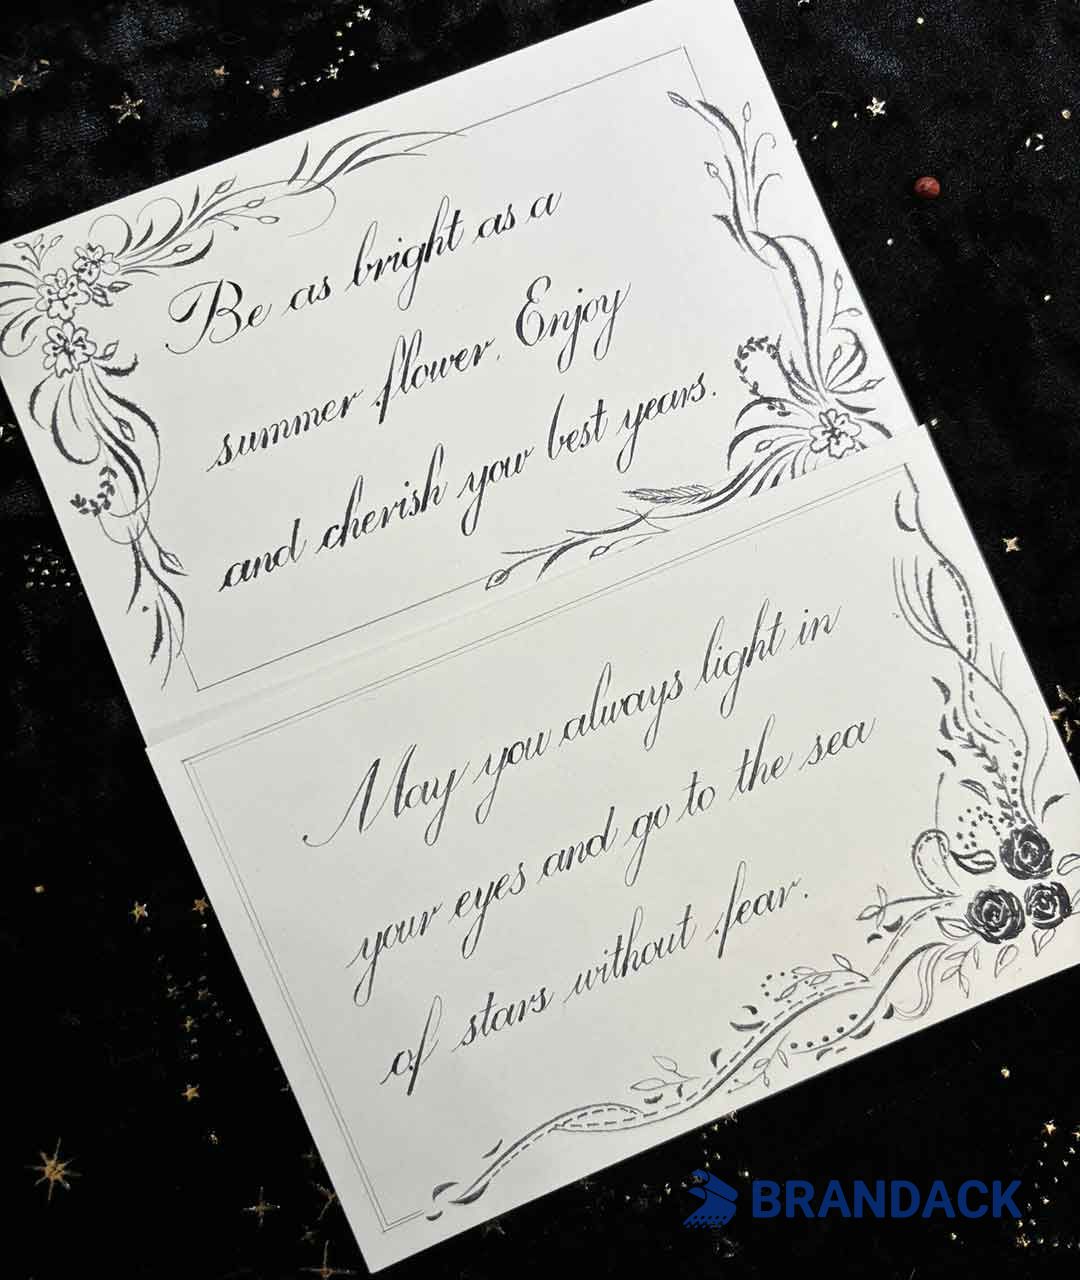 Be as bright as a
summer flower. Enjoy
and cherish your best years.
May you always light in
your eyes and go to the sea
of stars without fear.
BRANDACK